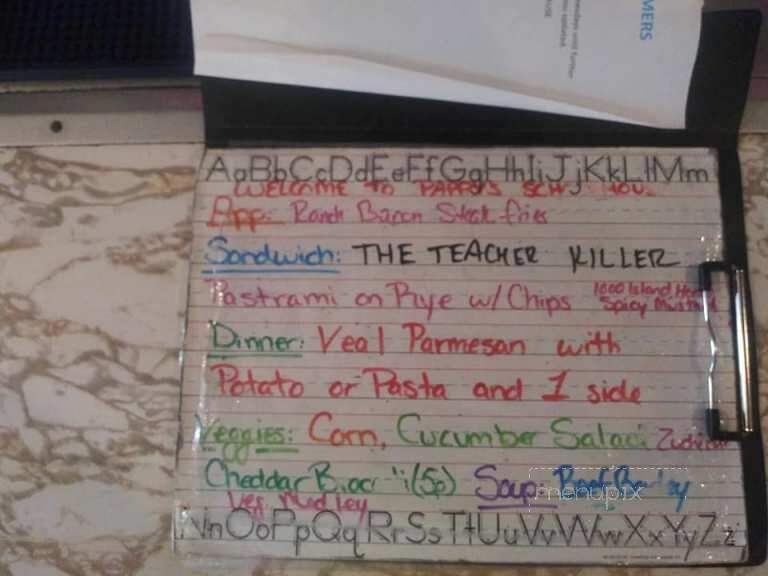 MERS
AaBbCcDdEeFfGgHhIiJjKkLlMm
WELCOME TO PAPPY'S
App: Ranch Bacon Steak fries
Sandwich: THE TEACHER KILLER
Pastrami on Rye w/ Chips 1000 Island
Spicy
Dinner: Veal Parmesan with
Potato or Pasta and 1 side
Veggies: Corn, Cucumber Salad
Cheddar (Sp) Soup: Beef
Veg Medley
menupix
NnOoPpQqRrSsTtUuVvWwXxYyZz